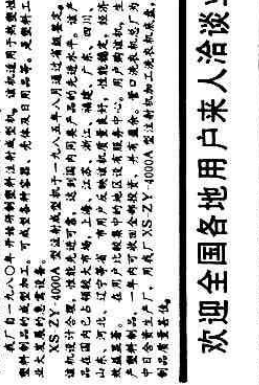 我厂自一九八〇年开始研制塑料注射成型机。该机适用于热塑性
塑料制品的成型加工，可成型各种容器、壳体及日用品等。是塑料工
业大发展的急需设备。
XS-ZY-4000A 型注射成型机于一九八五年八月通过省级鉴定。
该机设计合理，性能先进可靠，达到国内同类产品的先进水平。该产
品在国内已占领较大市场，上海、江苏、浙江、福建、广东、四川、
山东、河北、辽宁等省市用户反映该机质量良好，性能稳定，经济
效益显著。在用户比较集中的地区设有服务中心。用户购该机，生
产塑料制品，一年内可收回全部投资，并有盈余。
中日合作生产厂，用我厂XS-ZY-4000A 型注射机加工洗衣机
制品质量甚佳。
欢迎全国各地用户来人洽谈